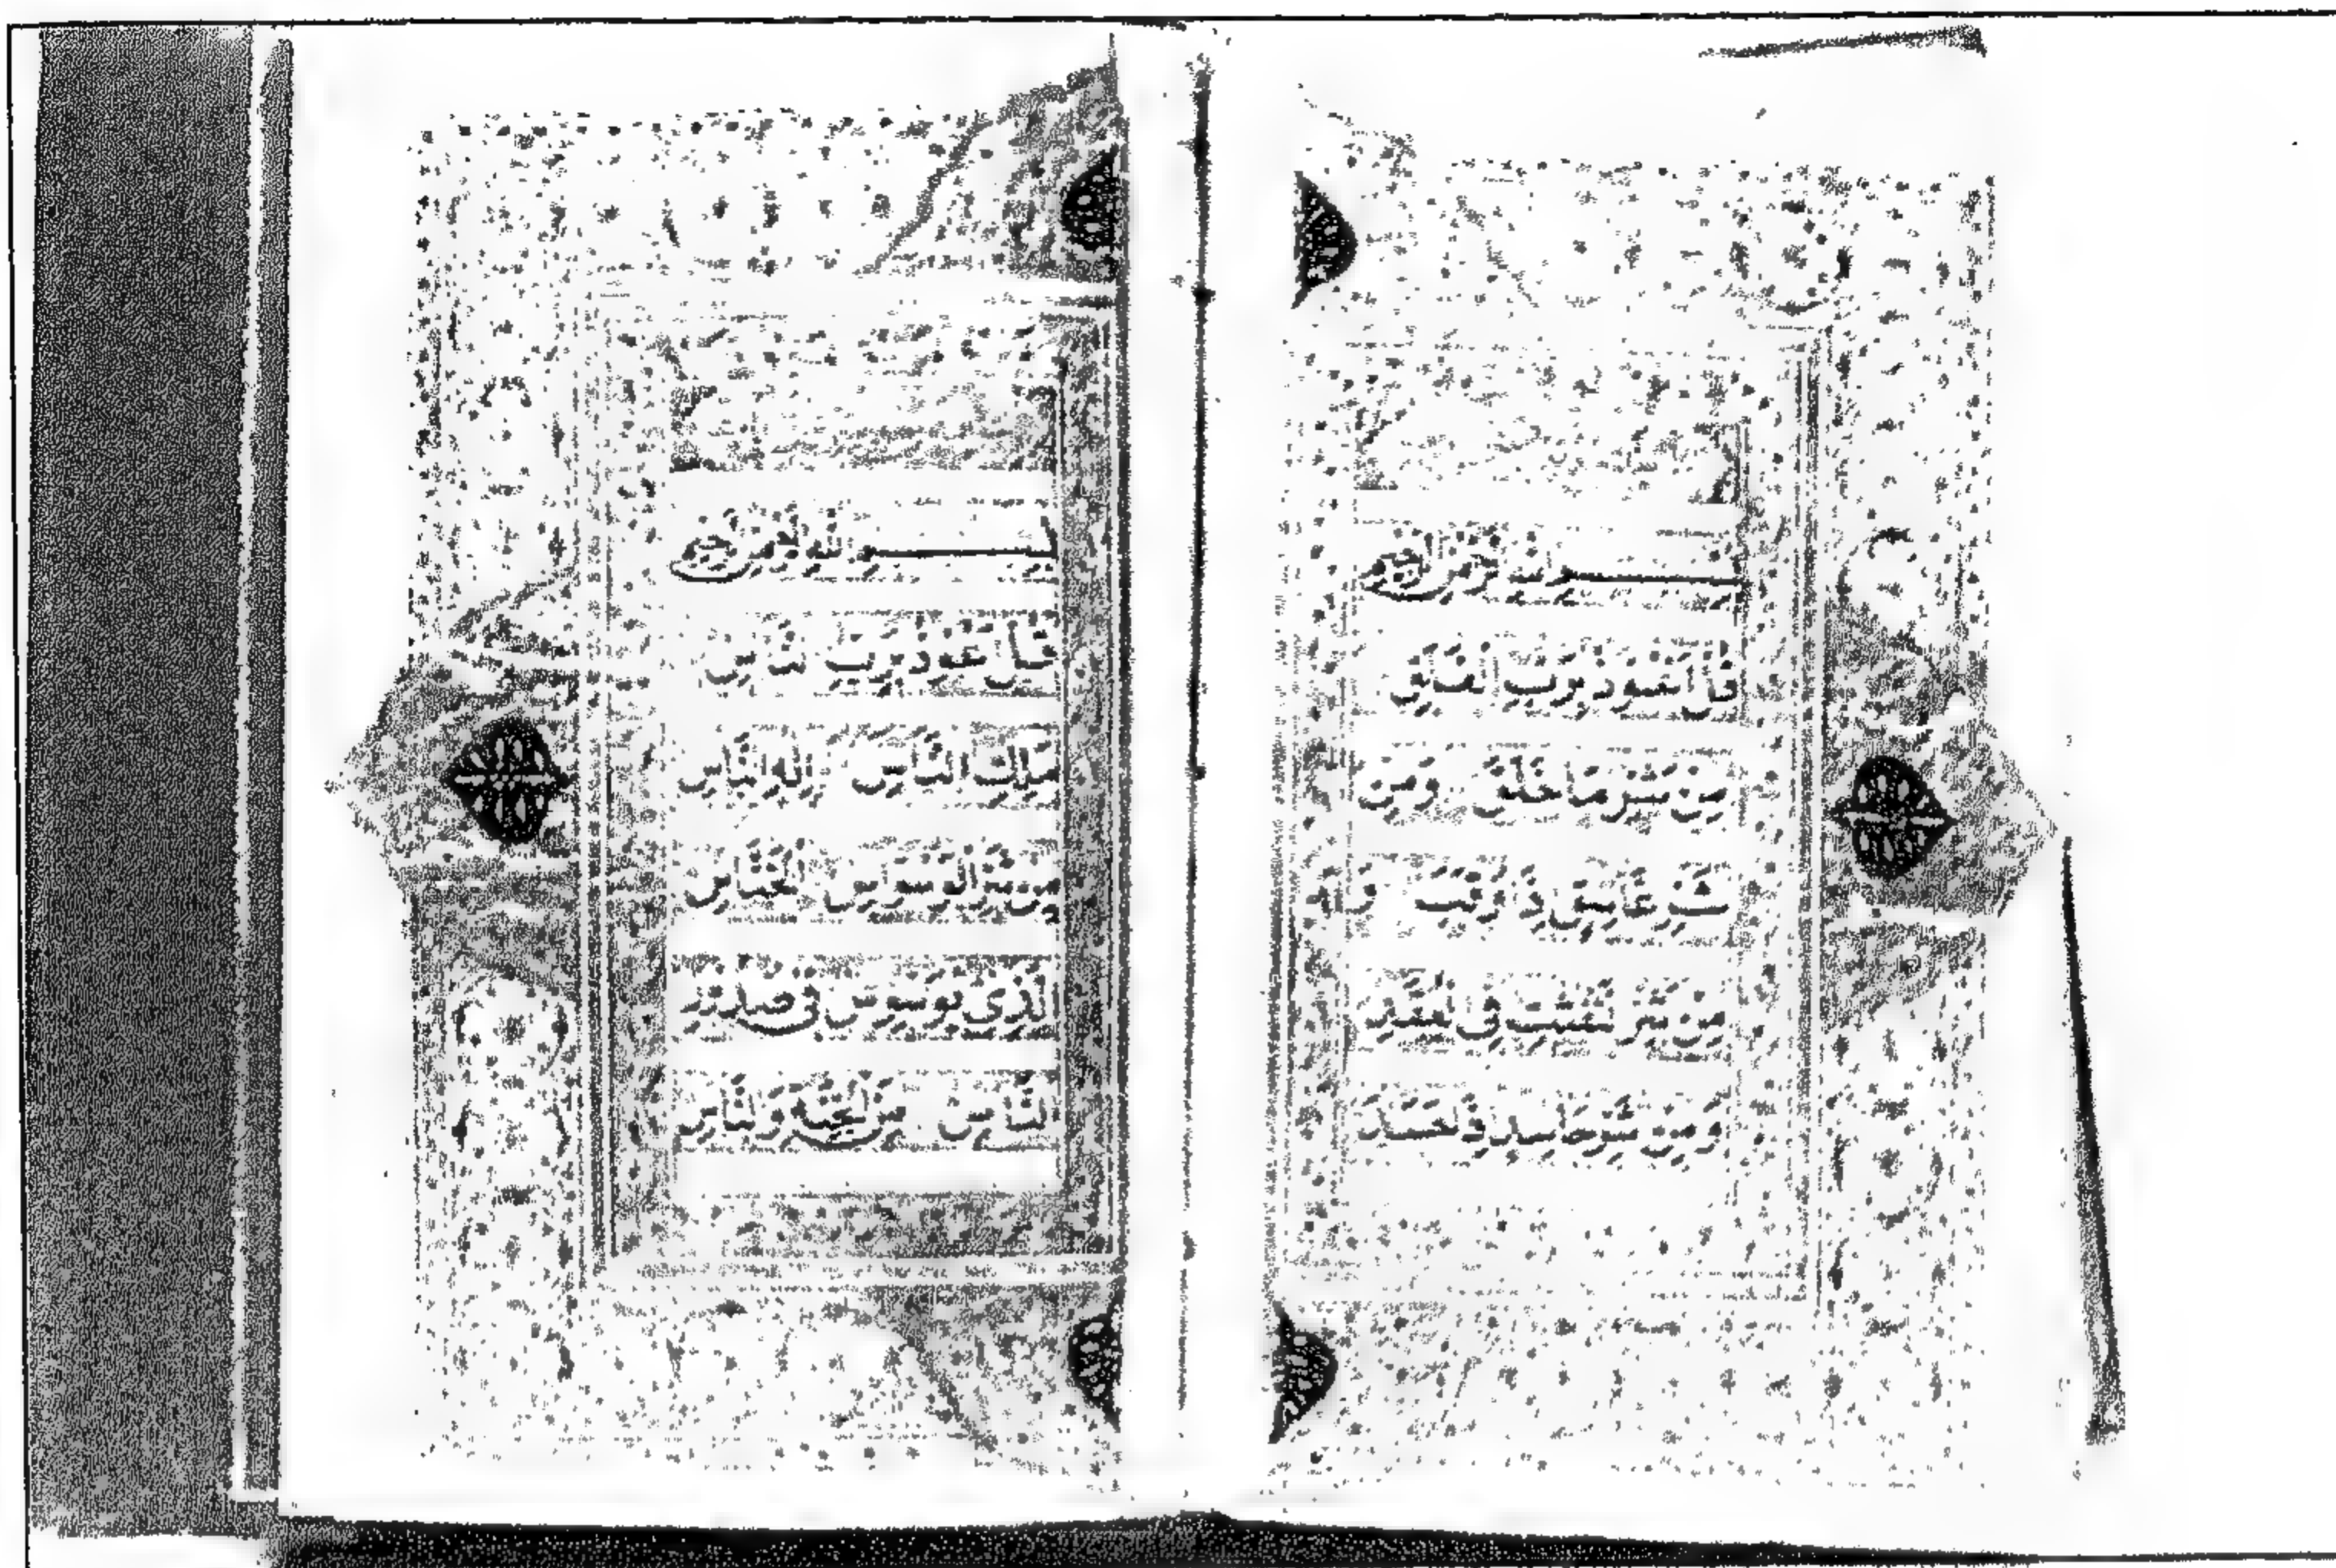 بسم الله الرحمن الرحيم
قل أعوذ برب الفلق
من شر ما خلق ومن
شر غاسق إذا وقب و
من شر النفثت في العقد
ومن شر حاسد إذا حسد
بسم الله الرحمن الرحيم
قل أعوذ برب الناس
ملك الناس إله الناس
من شر الوسواس الخناس
الذي يوسوس في صدور
الناس من الجنة والناس